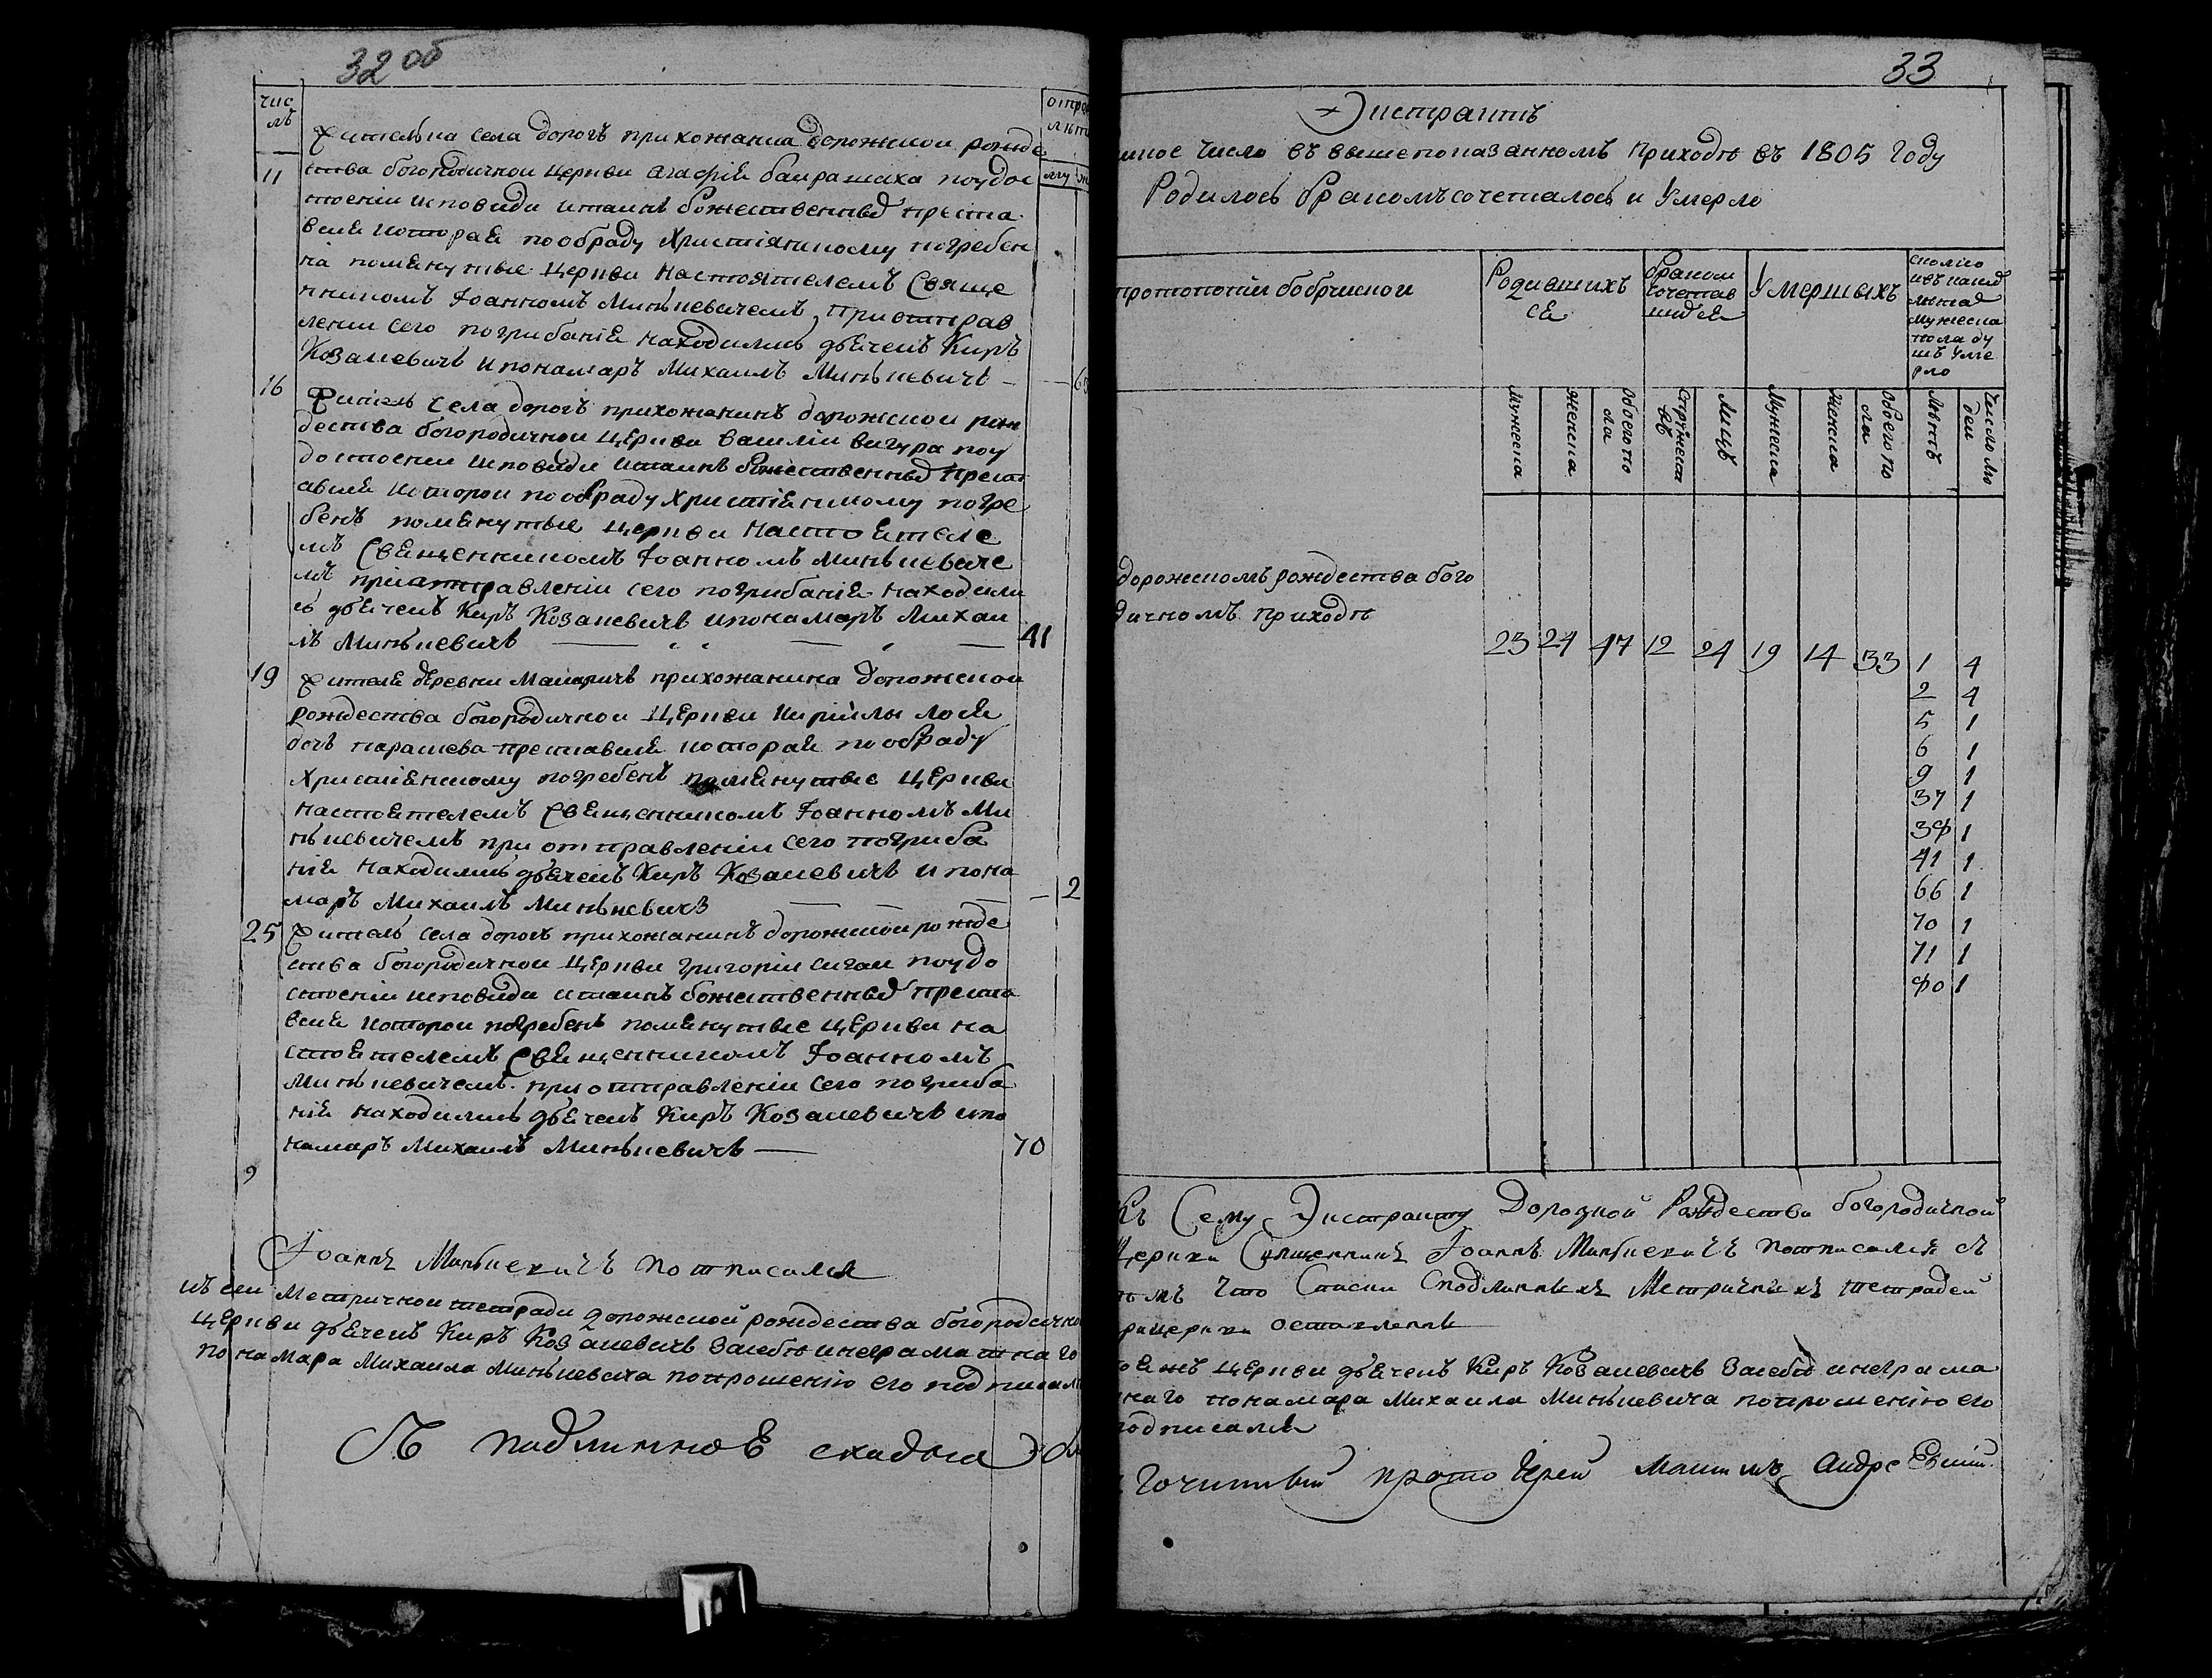 32 об
чис
лъ
отпра
лѣт
жителька села дорогъ прихожанка дорожской рожде
11 ства богородичной церкви агафія баирашаха поудос
му ж
тоеніи исповѣди итаинъ божественныхъ преста
вися которая пообраду христіянскому погребен
на помянутые церкви настоятелемъ Свяще
нникомъ Іоанномъ Минкевичемъ, приотправ
лении сего погрибанія находились дьячекъ Киръ
Козакевичъ ипонамаръ Михаилъ Минькевичъ —
16 житель села дорогъ прихожанинъ дорожской рож
дества богородичной церкви василіи вигура поу
достоении исповѣди итаинъ божественныхъ прест
ависи которои пообраду христіянскому погре
бенъ помянутые церкви настоятеле
мъ Священникомъ Іоанномъ Минькевиче
мъ приатправленіи сего погрибаніе находили
сь дьячекъ Киръ Козакевичъ ипонамаръ Михаи
лъ Минькевичъ — 41
19 жителя деревни прихожанина дорожской
рождества богородичной церкви кирилы лося
дочъ парасиева преставися которая пообраду
христіянскому погребенъ помянутые церкви
настоятелемъ Священникомъ Іоанномъ Ми
нькевичемъ при отправленіи сего погриба
нія находились дьячекъ Киръ Козакевичъ и пона
маръ Михаилъ Минькевичъ — — — 2
25 житель села дорогъ прихожанинъ дорожской рожде
ства богородичной церкви григоріи сиган поудо
стоеніи исповѣди итаинъ божественныхъ преста
вися которои погребенъ помянутые церкви на
стоятелемъ Священникомъ Іоанномъ
Минькевичемъ при отправленіи сего погриба
нія находились дьячекъ Киръ Козакевичъ ипо
намаръ Михаилъ Минькевичъ — 70
9
Іоаннъ Минькевичъ потписался
къ сеи метричной тетради дорожской рождества богородично
церкви дьячекъ Киръ Козакевичъ засебѣ инеграматнаго
понамара Михаила Минькевича попрошенію его подписал
Съ подлинное
33
Экстрактъ
число въ вышепоказанномъ приходѣ въ 1805 году
Родилось бракомъ сочеталось и Умерло
протопопіи бобруиской
Родившихъ
ся
бракомъ
сочетав
шихся
Умершыхъ
сколко
ивъ какихъ
лѣтахъ
мужеска
пола ду
шъ уме
рло
мужеска
женска
обоего по
ла
Супружест
въ
Лицъ
мужеска
женска
обоего по
ла
Лѣтъ
Число лю
деи
дорожскомъ рождества бого
дичномъ приходѣ
23 24 47 12 24 19 14 33 1 4
2 4
5 1
6 1
9 1
37 1
38 1
41 1
66 1
70 1
71 1
80 1
Къ Сему Экстракту Дорозкой Рождества богородичной
Церкви Священникъ Іоаннъ Минькевичъ потписался съ
тѣмъ что Списки Сподлинныхъ Метричныхъ тетрадей
рицеркви оставленны
церкви дьячекъ Киръ Козакевичъ засебѣ инеграма
наго понамара Михаила Минькевича попрошенію его
подписался
протоіерей